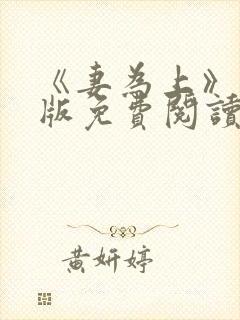 《妻為上》
版免費閱讀
黃妍婷